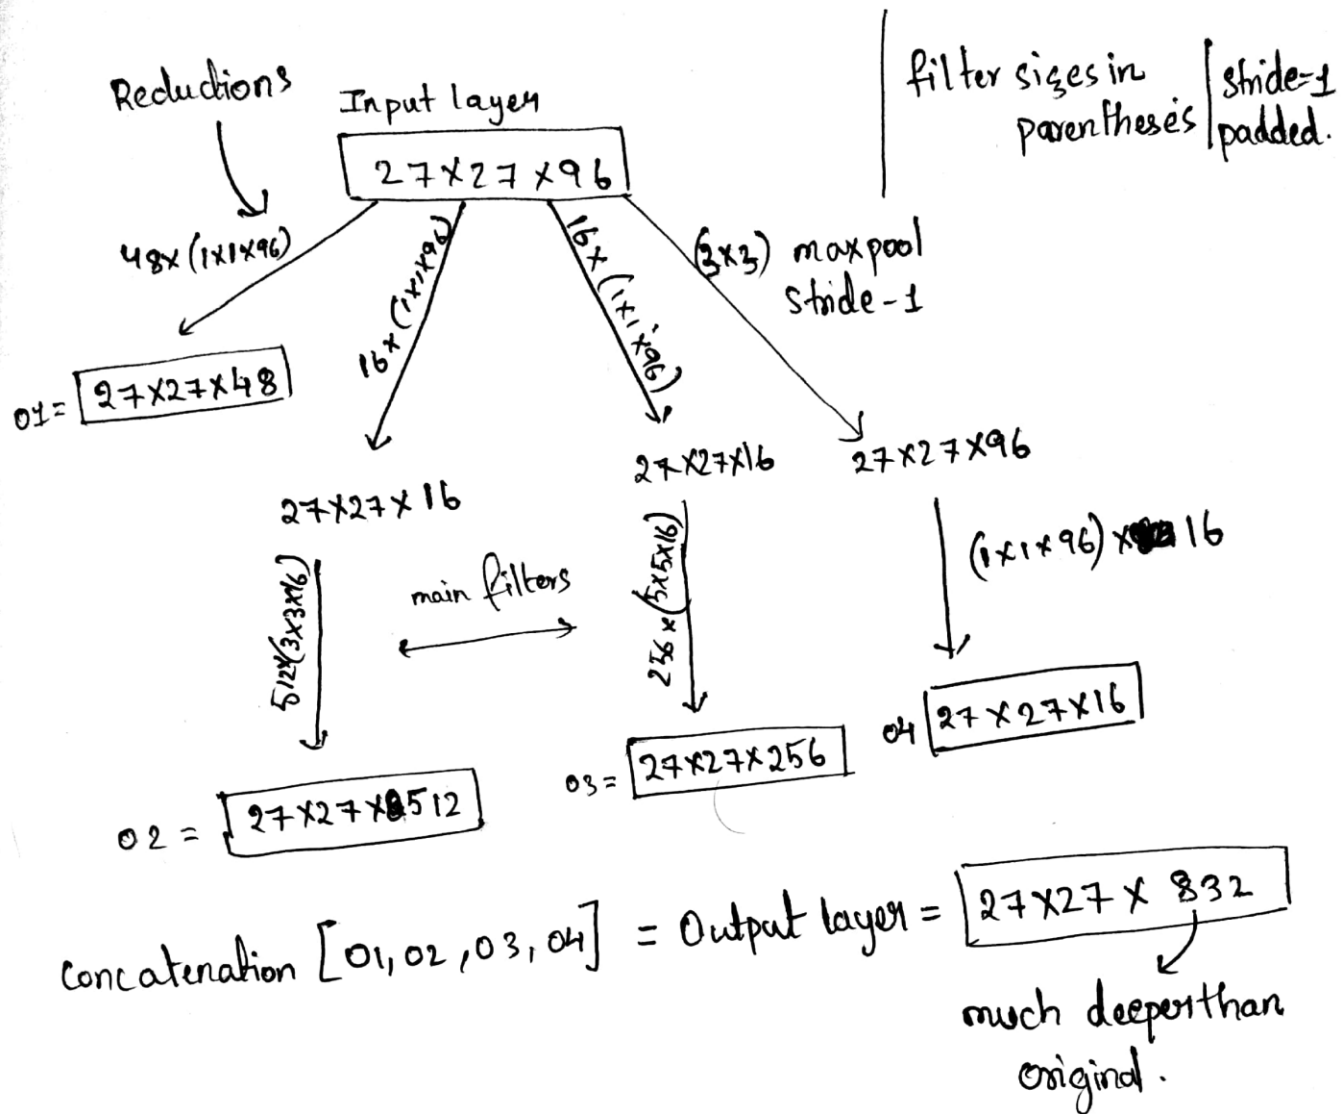 Reductions
Input layer
filter sizes in
parentheses
stride=1
padded.
27×27×96
48×(1×1×96)
16×(1×1×96)
16×(1×1×96)
(3×3) maxpool
stride-1
01= 27×27×48
27×27×16
27×27×16
27×27×96
512×(3×3×16)
main filters
256×(5×5×16)
(1×1×96)× 16
02 = 27×27×512
03= 27×27×256
04 27×27×16
Concatenation [01,02,03,04] = Output layer = 27×27× 832
much deeper than
original.